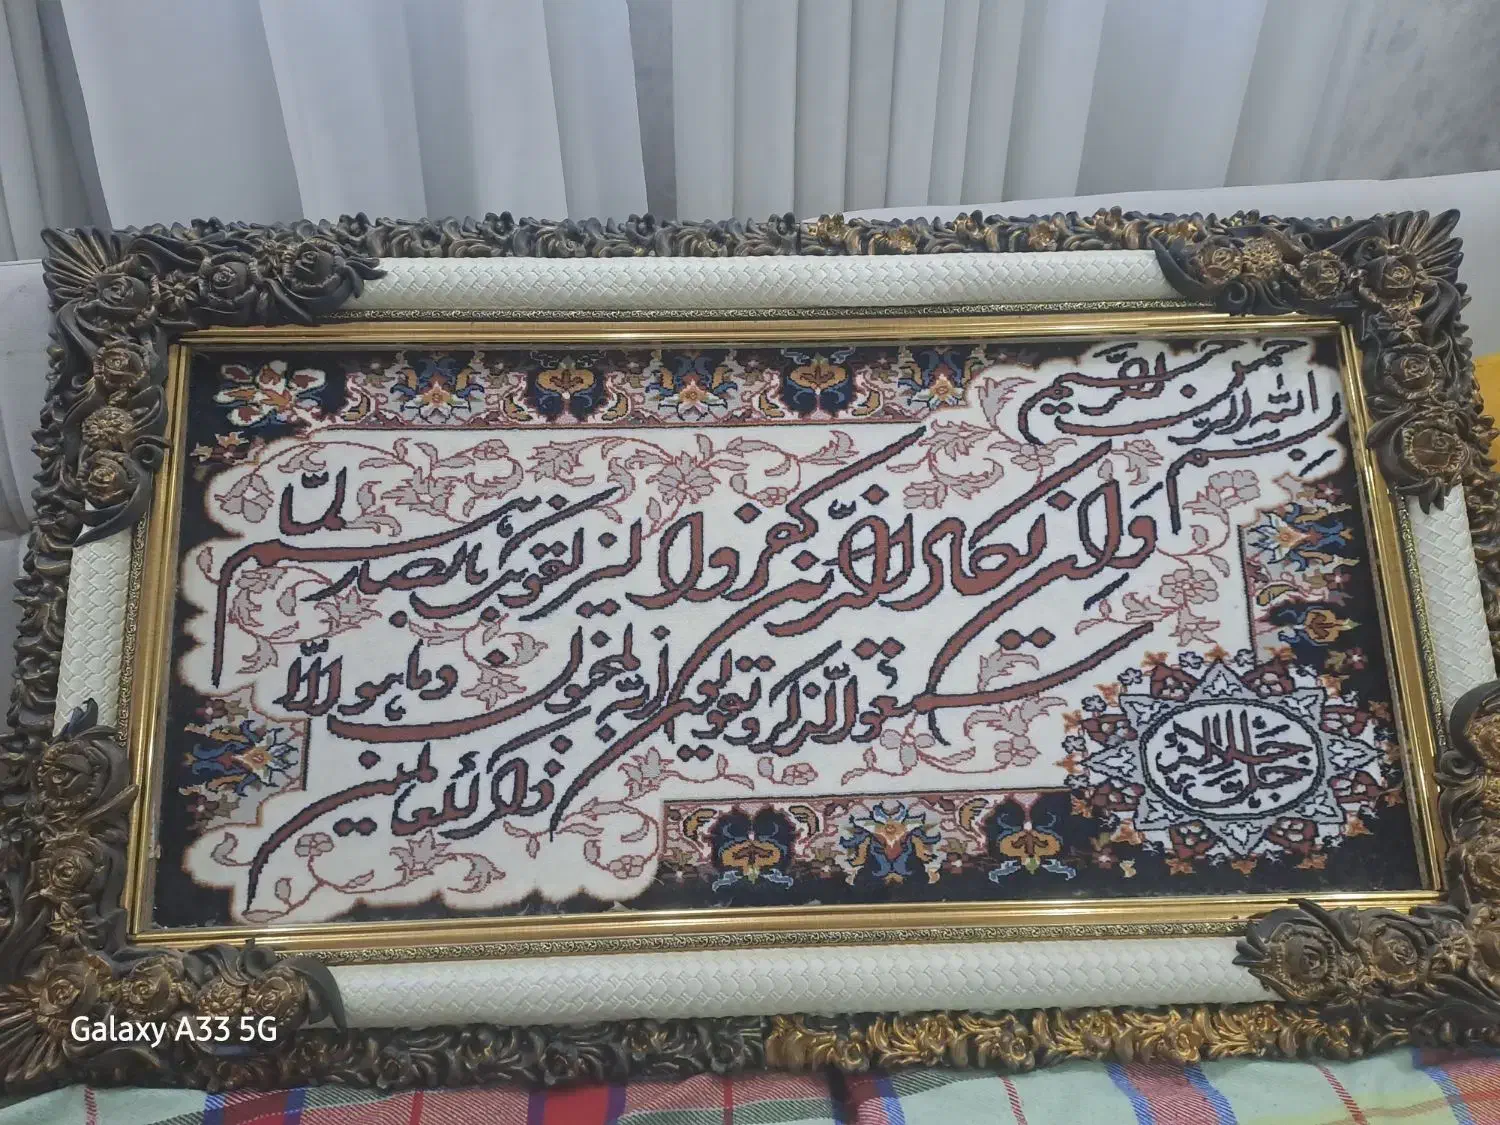 بسم الله الرحمن الرحیم
وان یکاد الذین کفروا لیزلقونک بابصارهم لما
سمعوا الذکر ویقولون انه لمجنون وما هو الا
ذکر للعالمین
جل جلاله
Galaxy A33 5G